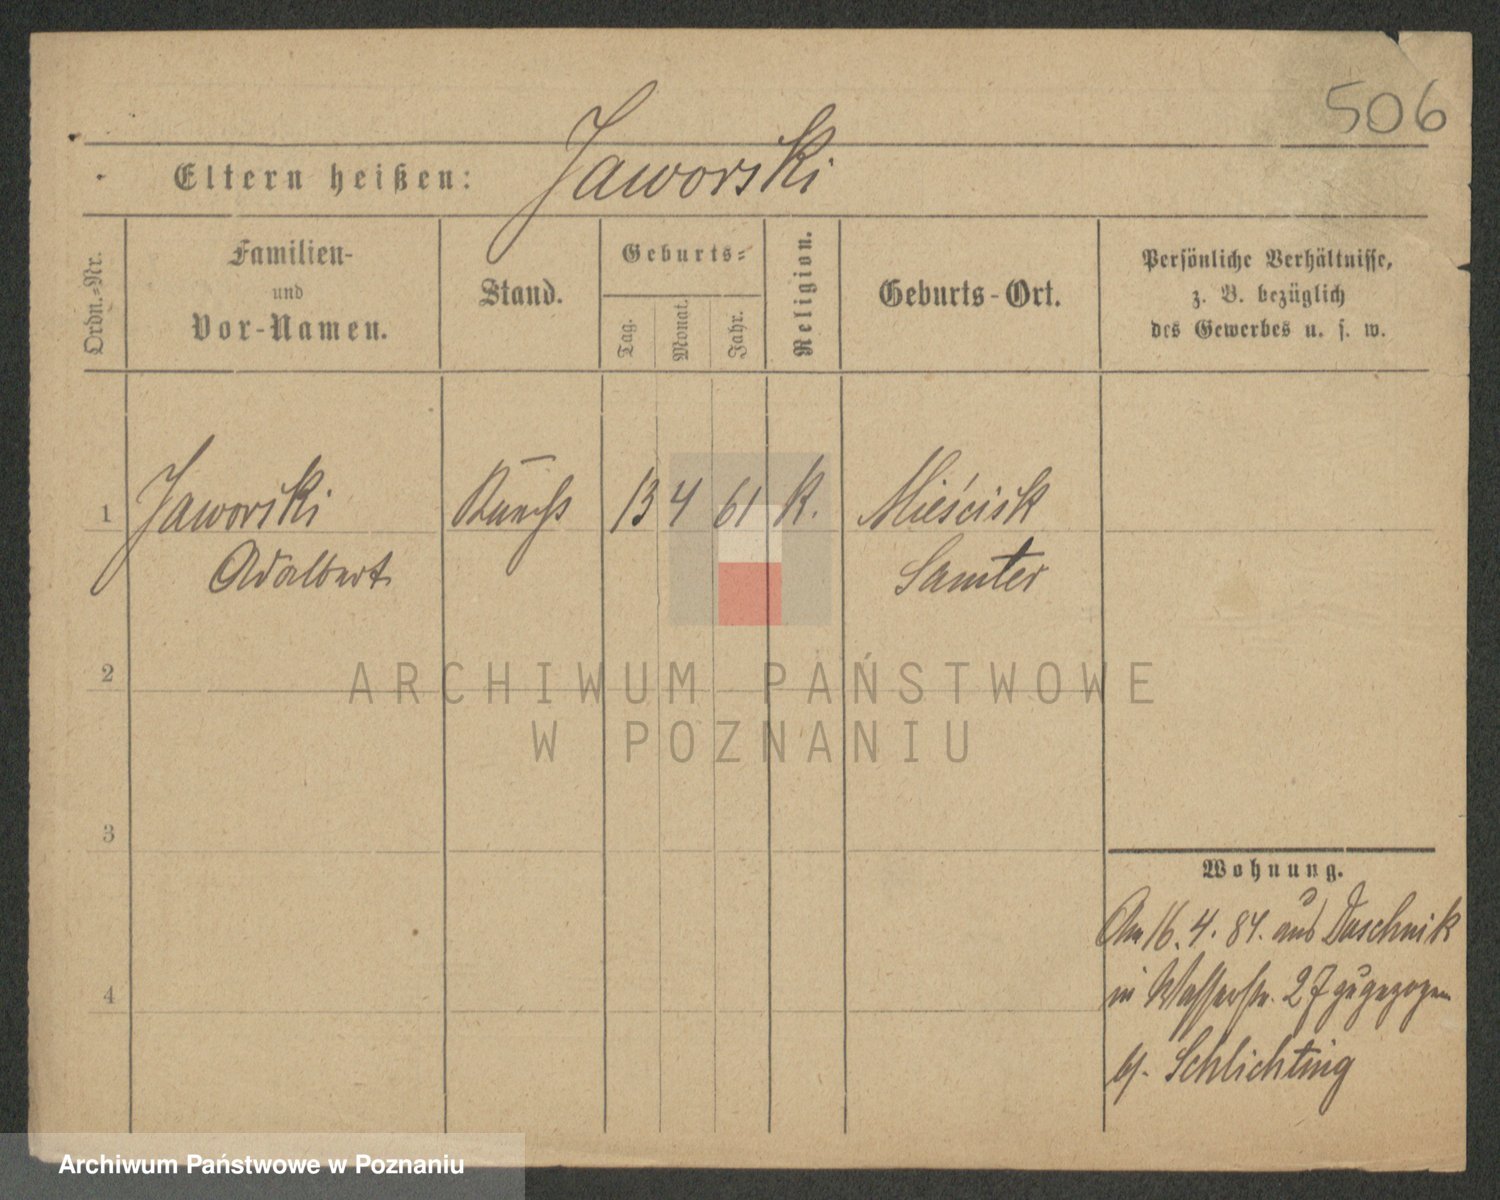 506
Eltern heißen: Jaworski
Ordn.=Nr.
Familien-
und
Vor-Namen.
Stand.
Geburts=
Tag.
Monat.
Jahr.
Religion.
Geburts-Ort.
Persönliche Verhältnisse,
z. B. bezüglich
des Gewerbes u. s. w.
1 Jaworski 13 4 61 K. Mieścisk
Adalbert Samter
2
ARCHIWUM PAŃSTWOWE
W POZNANIU
3
Wohnung.
Am 16.4.84. aus Duschnik
in Wasserstr. 27 zugezogen
4
b/. Schlichting
Archiwum Państwowe w Poznaniu